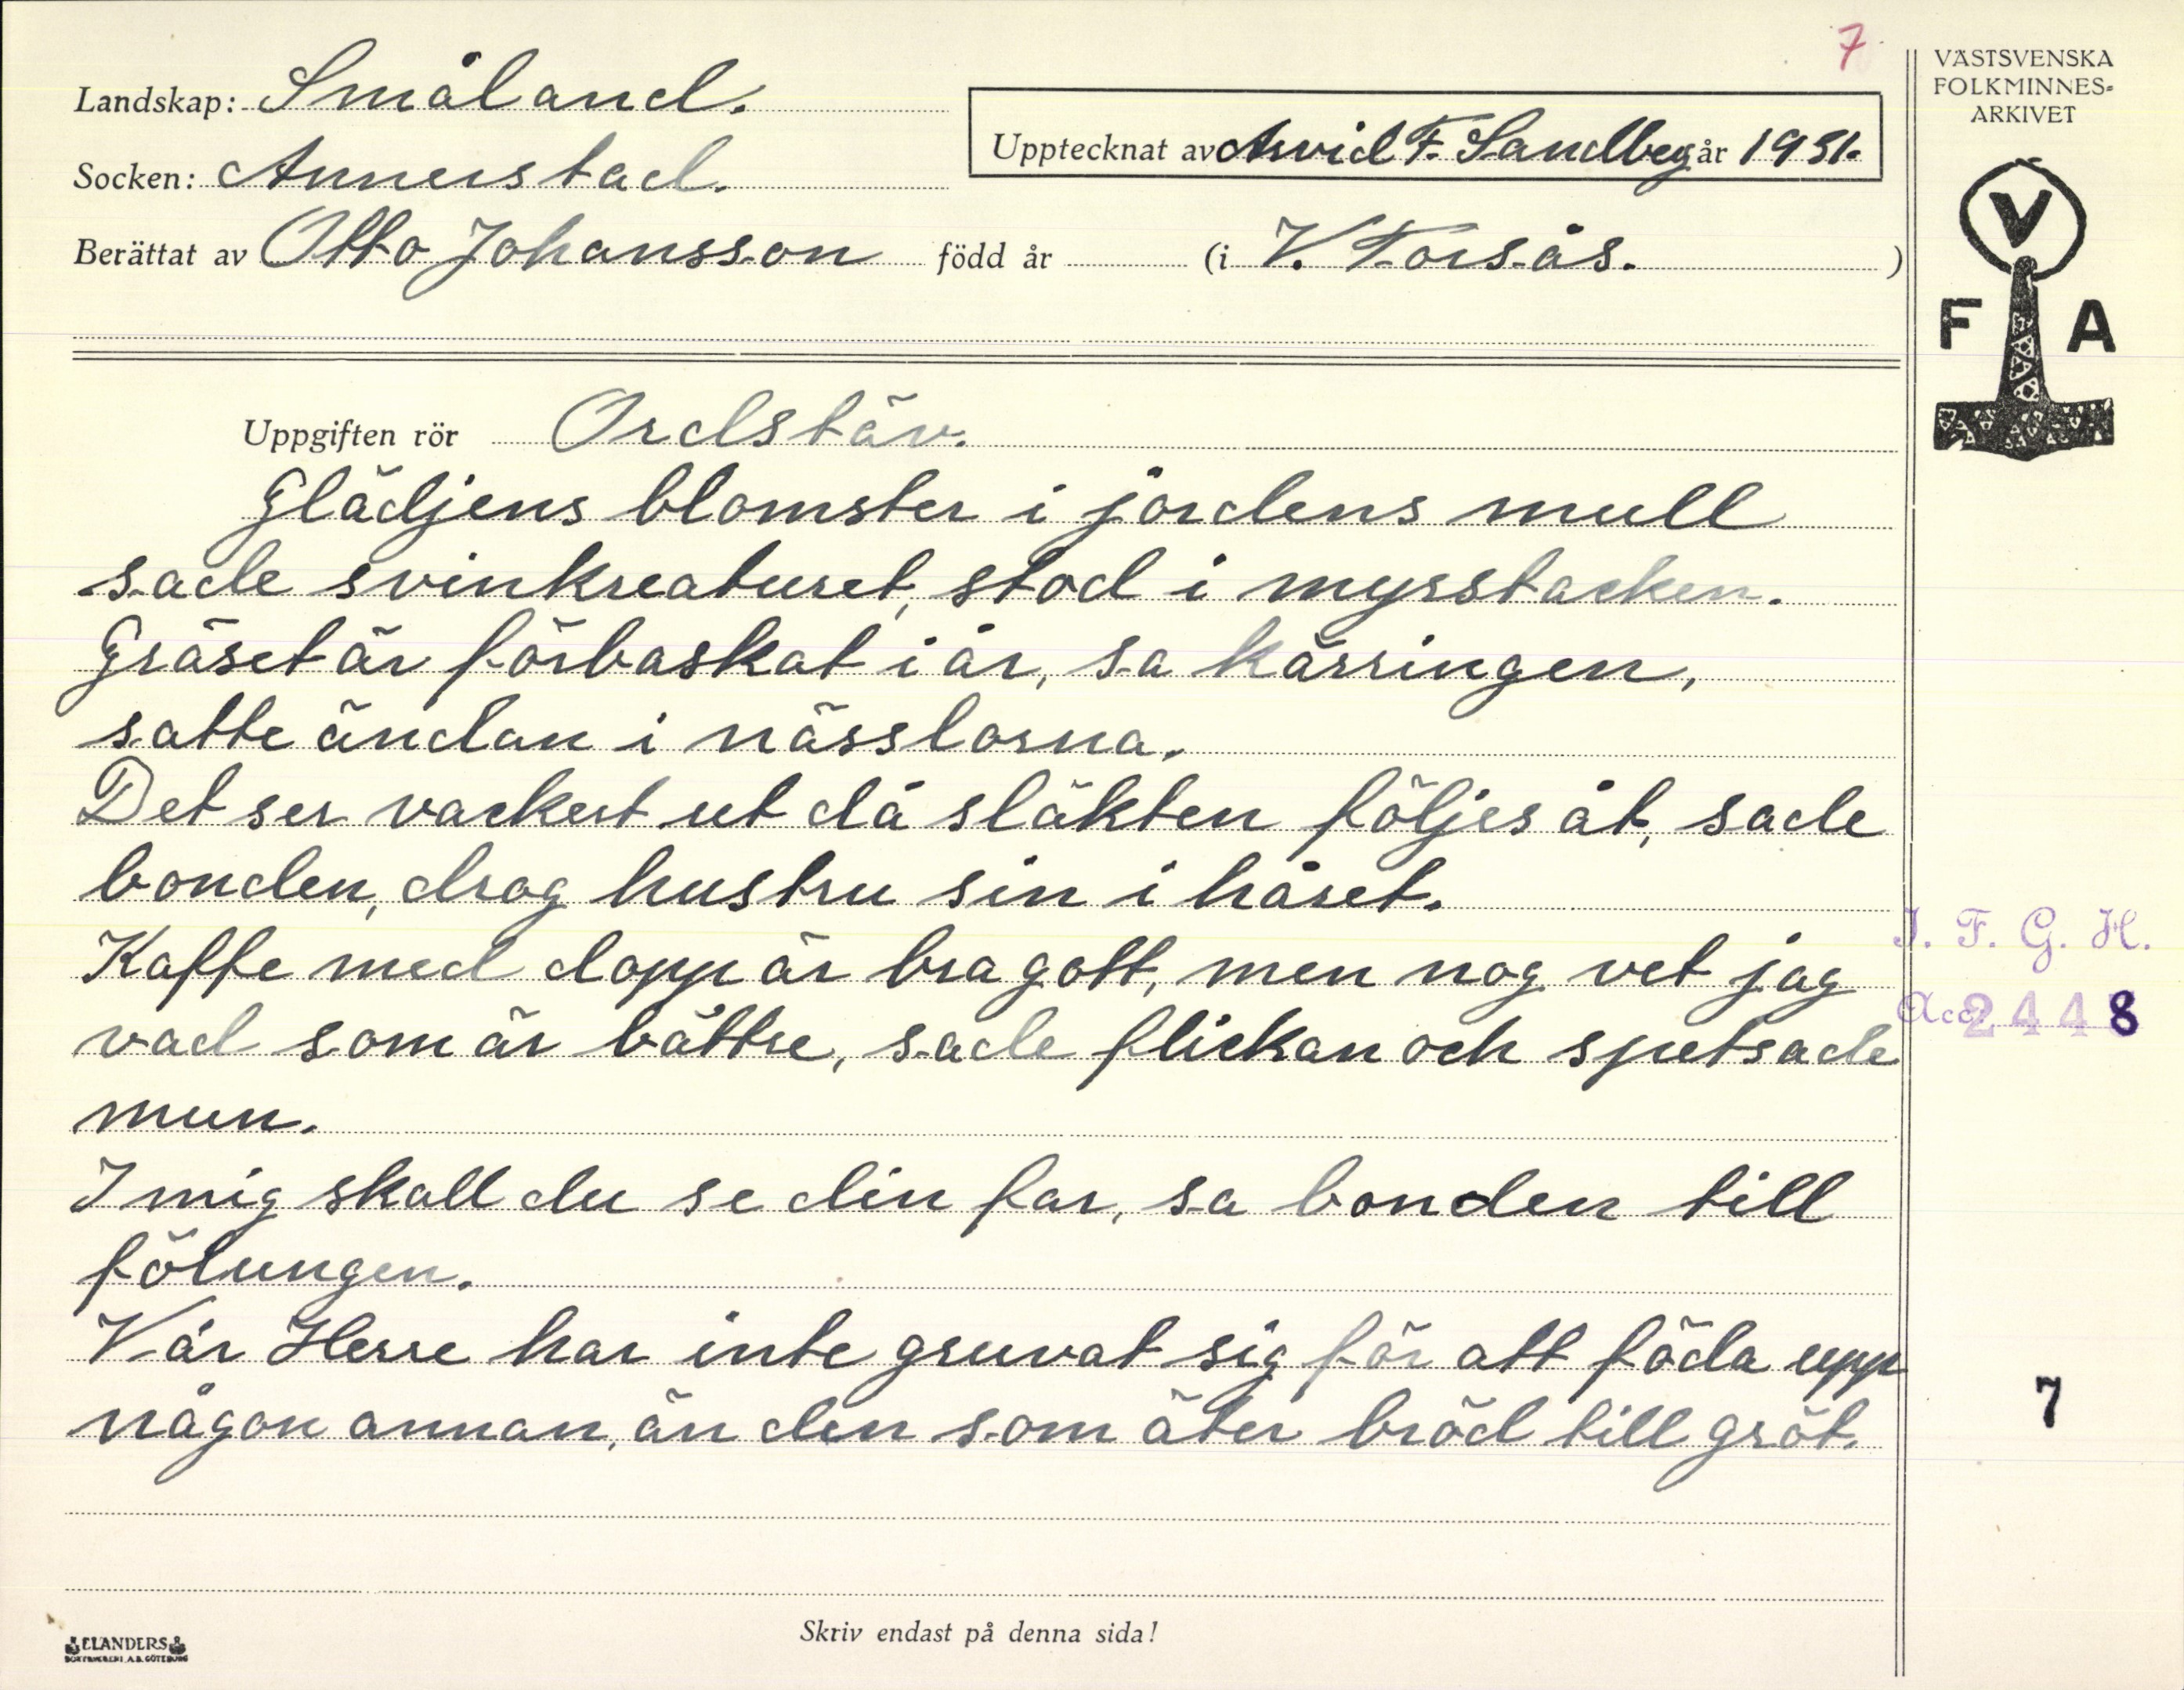 7
Landskap: Småland.
Socken: Annerstad.
Upptecknat av Arvid F. Sandberg år 1931.
Berättat av Otto Johansson född år (i V. Torsås. )
VÄSTSVENSKA
FOLKMINNES-
ARKIVET
V
F A
Uppgiften rör Ordstäv.
Glädjens blomster i jordens mull
sade svinkreaturet, stod i myrstacken.
Gräset är förbaskat i år, sa kärringen,
satte ändan i nässlorna.
Det ser vackert ut då släkten följes åt, sade
bonden, drog hustru sin i håret.
Kaffe med dopp är bra gott, men nog vet jag
vad som är bättre, sade flickan och spetsade
mun.
I mig skall du se din far, sa bonden till
fölungen.
Vår Herre har inte gruvat sig för att föda upp
någon annan, än den som äter bröd till gröt.
I. F. G. H.
Acc. 2448
7
Skriv endast på denna sida!
ELANDERS
BOKTRYCKERI A.B. GÖTEBORG